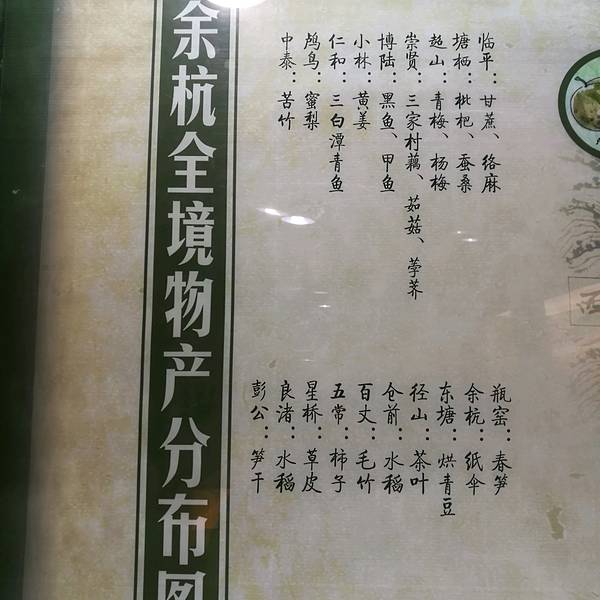 余杭全境物产分布图
临平：甘蔗、络麻
塘栖：枇杷、蚕桑
超山：青梅、杨梅
崇贤：三家村藕、茹菇、荸荠
博陆：黑鱼、甲鱼
小林：黄姜
仁和：三白潭青鱼
鸬鸟：蜜梨
中泰：苦竹
瓶窑：春笋
余杭：纸伞
东塘：烘青豆
径山：茶叶
仓前：水稻
百丈：毛竹
五常：柿子
星桥：草皮
良渚：水稻
彭公：笋干